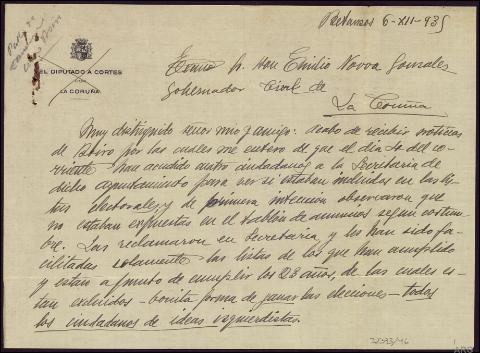 Betanzos 6-XII-935
EL DIPUTADO A CORTES
POR
LA CORUÑA
Excmo Sr. Don Emilio Novoa Gonzales
Gobernador Civil de
La Coruña
Muy distinguido señor mio y amigo: Acabo de recibir noticias
de por las cuales me entero de que el día 4 del co-
rriente han acudido cuatro ciudadanos a la Secretaria de
dicho ayuntamiento para ver si estaban incluidos en las lis-
tas electorales y de primera intención observaron que
no estaban expuestas en el tablón de anuncios según costum-
bre. Las reclamaron en Secretaria y les han sido fa-
cilitadas solamente las listas de los que han cumplido
y están a punto de cumplir los 23 años, de las cuales es-
tan excluidos - bonita forma de ganar las elecciones - todos
los ciudadanos de ideas izquierdistas.